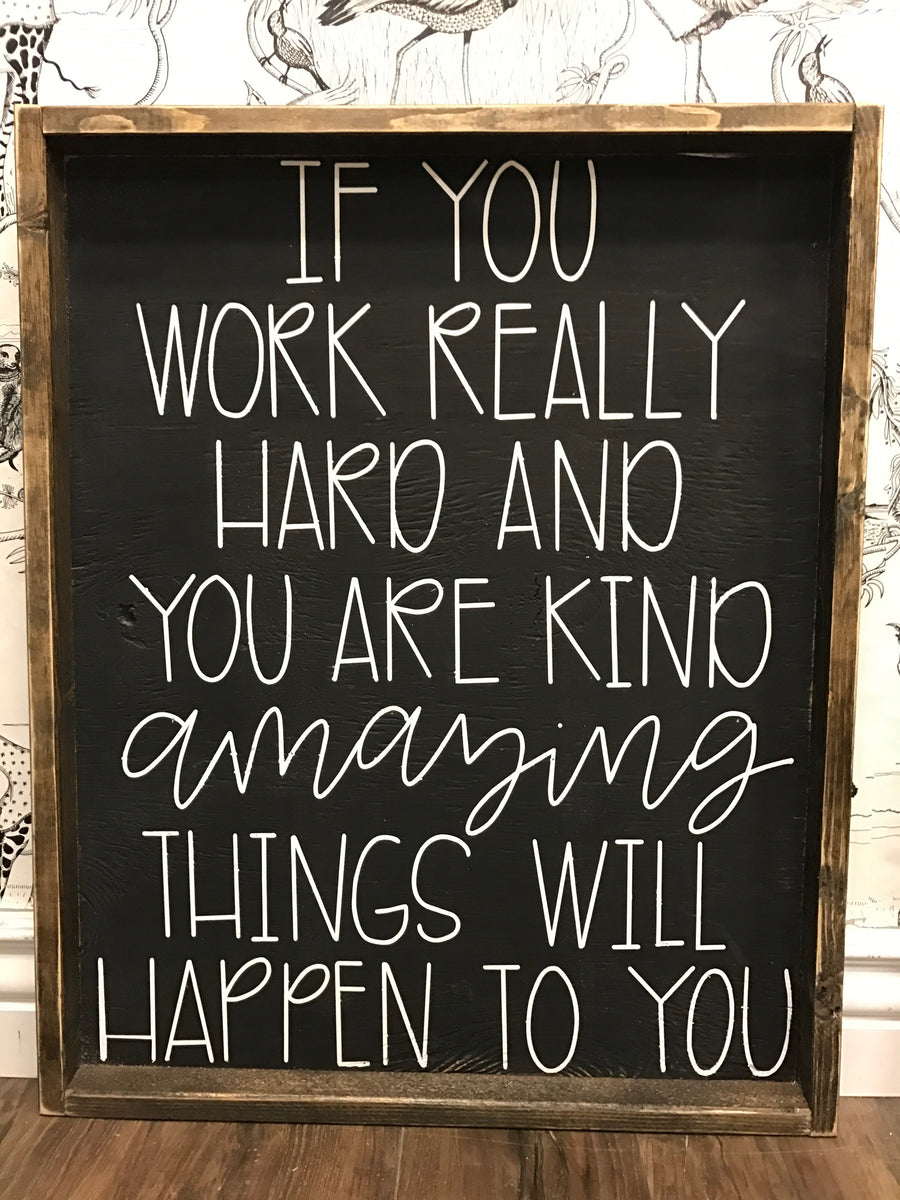 IF YOU
WORK REALLY
HARD AND
YOU ARE KIND
amazing
THINGS WILL
HAPPEN TO YOU